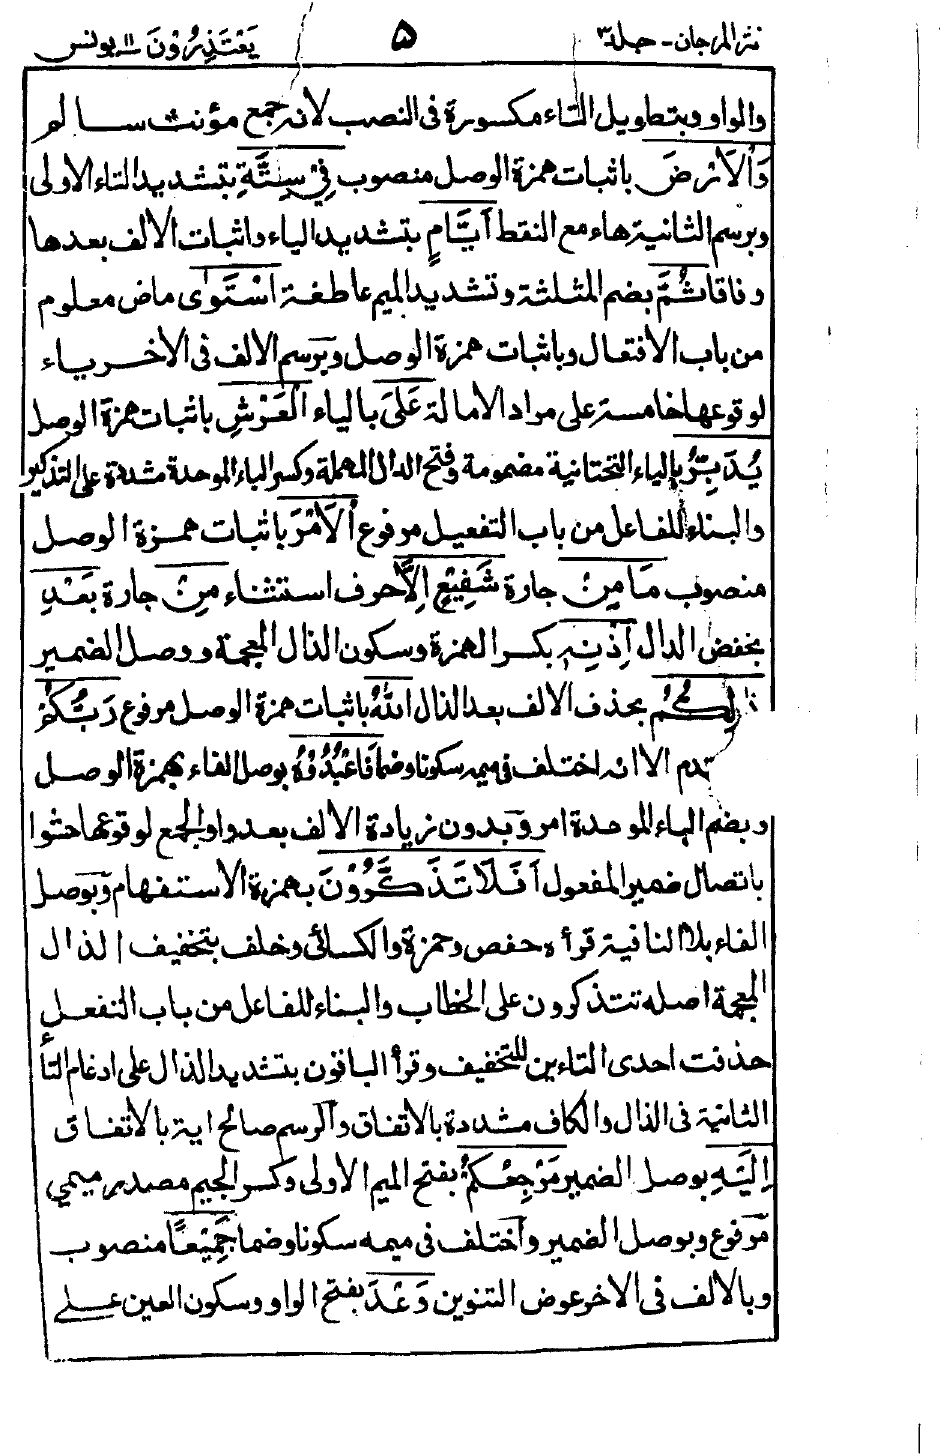 نثر المرجان - جلد ٣ ۵ يَعْتَذِرُوْنَ ١١ يونس
والواو وبتطويل التاء مكسورة فى النصب لانه جمع مؤنث سالم
وَالْاَرْضَ باثبات همزة الوصل منصوب فِيْ سِتَّةِ بتشديد التاء الاولى
وبرسم الثانية هاء مع النقط اَيَّامٍ بتشديد الياء واثبات الالف بعدها
وفاقا ثُمَّ بضم المثلثة وتشديد الميم عاطفة اسْتَوٰى ماض معلوم
من باب الافتعال وباثبات همزة الوصل وبرسم الالف فى الاخر ياء
لوقوعها خامسة على مراد الامالة عَلَى بالياء الْعَرْشِ باثبات همزة الوصل
يُدَبِّرُ بالياء التحتانية مضمومة وفتح الدال المهملة وكسر الباء الموحدة مشددة على التذكير
والبناء للفاعل من باب التفعيل مرفوع الْاَمْرَ باثبات همزة الوصل
منصوب مَا مِنْ جارة شَفِيْعٍ اِلَّا حرف استثناء مِنْ جارة بَعْدِ
بخفض الدال اِذْنِهٖ بكسر الهمزة وسكون الذال المعجمة ووصل الضمير
ذٰلِكُمُ بحذف الالف بعد الذال اللّٰهُ باثبات همزة الوصل مرفوع رَبُّكُمْ
تقدم الا انه اختلف فى ميمه سكونا وضما فَاعْبُدُوْهُ بوصل الفاء بهمزة الوصل
وبضم الباء الموحدة امر وبدون زيادة الالف بعد واو الجمع لوقوعها حشوا
باتصال ضمير المفعول اَفَلَا تَذَكَّرُوْنَ بهمزة الاستفهام وبوصل
الفاء بلا النافية قرأه حفص وحمزة والكسائى وخلف بتخفيف الذال
المعجمة اصله تتذكرون على الخطاب والبناء للفاعل من باب التفعل
حذفت احدى التاءين للتخفيف وقرأ الباقون بتشديد الذال على ادغام التاء
الثانية فى الذال والكاف مشددة بالاتفاق والرسم صالح اية بالاتفاق
اِلَيْهِ بوصل الضمير مَرْجِعُكُمْ بفتح الميم الاولى وكسر الجيم مصدر ميمي
مرفوع وبوصل الضمير واختلف فى ميمه سكونا وضما جَمِيْعًا منصوب
وبالالف فى الاخر عوض التنوين وَعْدَ بفتح الواو وسكون العين على